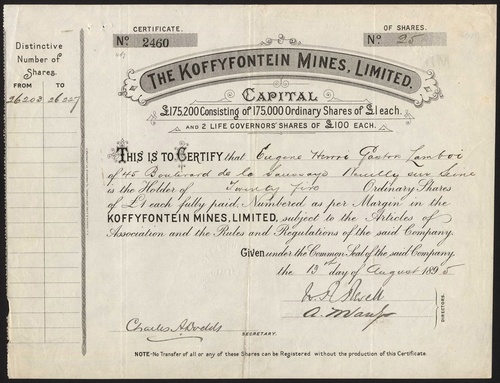 CERTIFICATE.
No. 2460
OF SHARES.
No. 25
Distinctive
Number of
Shares.
FROM TO
26203 26227
THE KOFFYFONTEIN MINES, LIMITED.
CAPITAL
£175,200 Consisting of 175,000 Ordinary Shares of £1 each.
AND 2 LIFE GOVERNORS' SHARES OF £100 EACH.
THIS IS TO CERTIFY that Eugene Gaston
of 45 Boulevard de la Saussaye Neuilly sur Seine
is the Holder of Twenty Five Ordinary Shares
of £1 each fully paid. Numbered as per Margin in the
KOFFYFONTEIN MINES, LIMITED, subject to the Articles of
Association and the Rules and Regulations of the said Company.
Given under the Common Seal of the said Company.
the 13th day of August 1895
DIRECTORS.
Charles A Dodds
SECRETARY.
NOTE-No Transfer of all or any of these Shares can be Registered without the production of this Certificate.